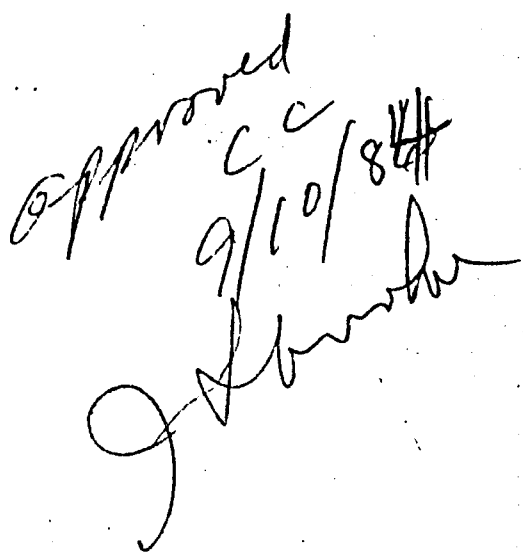 approved
CC
9/10/84